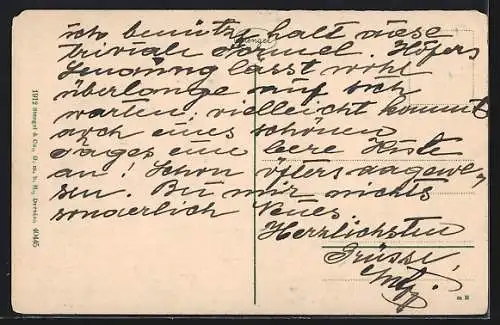 ich benütze halt diese
triviale Formel. Höfers
Sendung lässt wohl
überlange auf sich
warten; vielleicht kommt
auch eines schönen
Tages eine leere Kiste
an! Schon öfters dagewe-
sen. Bei mir nichts
sonderlich Neues.
Herzlichsten
Grüsse
1912 Stengel & Co., G. m. b. H., Dresden 40446